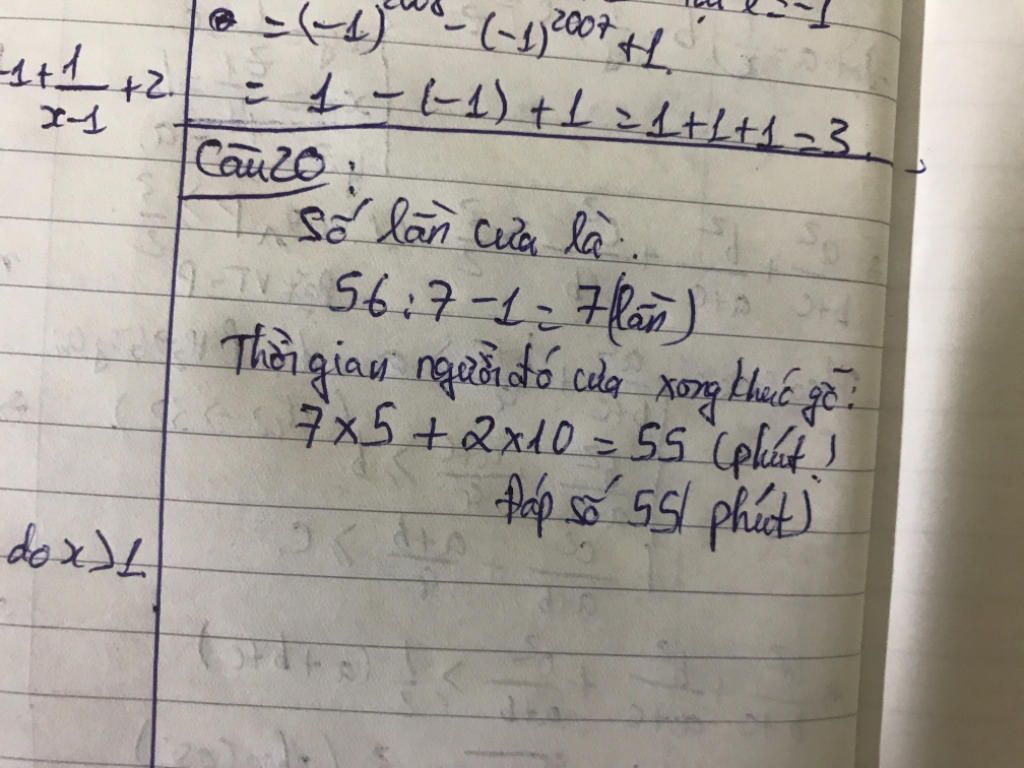 = (-1)^2008 - (-1)^2007 + 1.
= 1 - (-1) + 1 = 1+1+1 = 3.
-1 + 1/(x-1) + 2.
Câu 20:
Số lần cưa là:
56 : 7 - 1 = 7 (lần)
Thời gian người đó cưa xong khúc gỗ:
7 x 5 + 2 x 10 = 55 (phút)
Đáp số 55 ( phút)
do x > 1